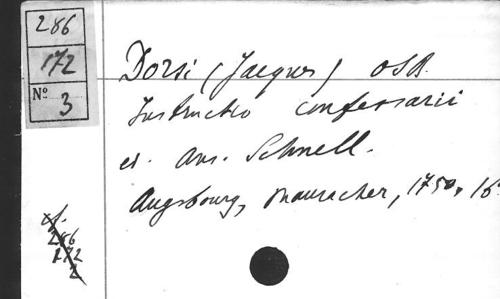 286
172
Nº 3
Dorsi (Jacques) OSB.
Instructio confessarii
et. Ans. Schnell.
Augsbourg, Mauracher, 1750, 16º
cf.
286
172
2